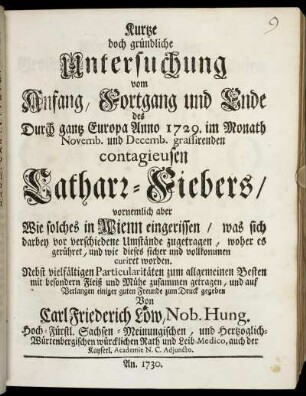 9
Kurtze
doch gründliche
Untersuchung
vom
Anfang, Fortgang und Ende
des
Durch gantz Europa Anno 1729. im Monath
Novemb. und Decemb. graissirenden
contagieusen
Catharr-Fiebers/
vornemlich aber
Wie solches in Wienn eingerissen/ was sich
darbey vor verschiedene Umstände zugetragen, woher es
gerühret, und wie dieses sicher und vollkommen
curiret worden.
Nebst vielfältigen Particularitäten zum allgemeinen Besten
mit besondern Fleiß und Mühe zusammen getragen, und auf
Verlangen einiger guten Freunde zum Druck gegeben
Von
Carl Friederich Löw, Nob. Hung.
Hoch-Fürstl. Sachsen-Meinungischen, und Hertzoglich-
Würtenbergischen würcklichen Rath und Leib-Medico, auch der
Kayserl. Academie N. C. Adjuncto.
An. 1730.